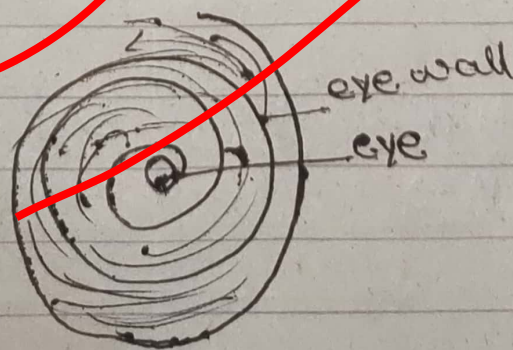 eye wall
eye